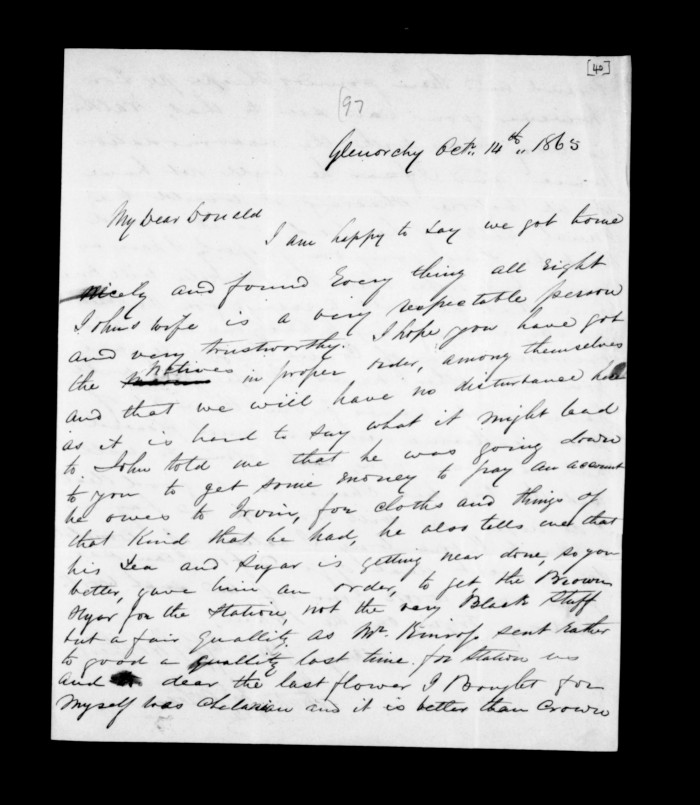 [40]
(97
Glenorchy Octr. 14th.. 1865
My Dear Donald
I am happy to say we got home
nicely and found Every thing all Eight
Johns wife is a very respectable person
and very trustworthy. I hope you have got
the Natives in proper order, among themselves
and that we will have no disturbance here
as it is hard to say what it might lead
to John told me that he was going down
to you to get some money to pay an account
he owes to Irvin, for cloths and things of
that Kind that he had, he also tells me that
his Tea and Sugar is getting near done, so you
better, gave him an order, to get the Brown
Shgar for the Station, not the very Black Stuff
but a fair Quallity. as Mr. Kinross sent Rather
to good a quallity last time. for Station us
and dear the last flower I Bought for
Myself was and it is better than Crown